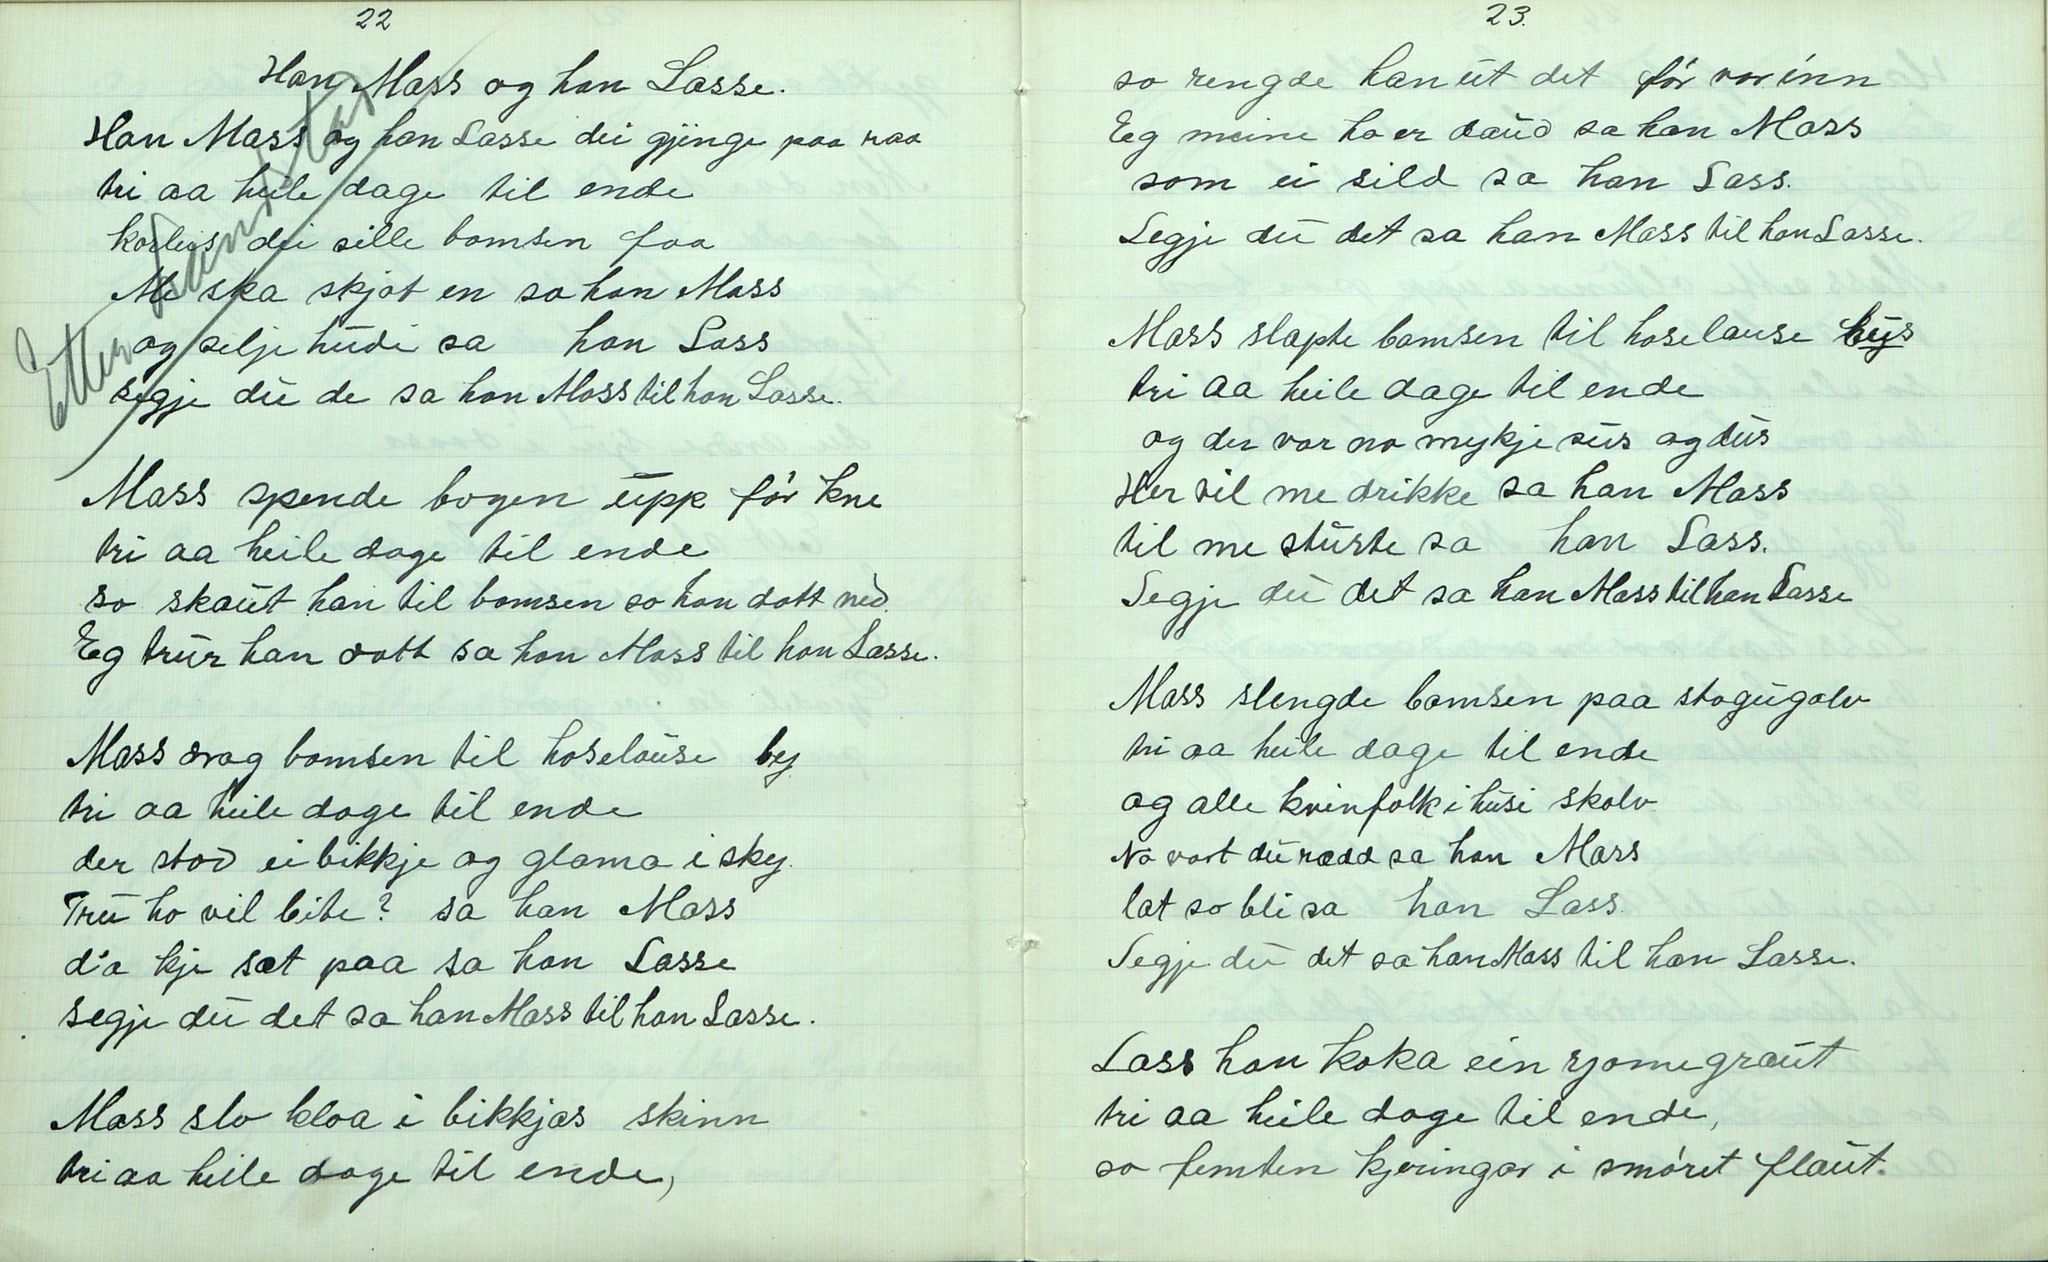 22
Han Mass og han Lasse.
Han Mass og han Lasse dei gjinge paa raa
tri aa heile dage til ende
korleis dei sille bamsen faa
Me ska skjot en sa han Mass
og selje hudi sa han Lass
segje du de sa han Mass til han Lasse.
Etter
Mass spende bogen upp før kne
tri aa heile dage til ende
so skaut han til bamsen so han datt ned.
Eg trur han datt sa han Mass til han Lasse.
Mass drog bamsen til hoselause by
tri aa heile dage til ende
der stod ei bikkje og glama i sky.
Tru ho vil bite? sa han Mass
d'a kje sæt paa sa han Lasse
segje du det sa han Mass til han Lasse.
Mass slo kloa i bikkjas skinn
tri aa heile dage til ende,
23.
so rengde han ut det før var inn
Eg meine ho er daud sa han Mass
som ei sild sa han Lass.
Segje du det sa han Mass til han Lasse.
Mass slapte bamsen til hoselause hus
tri aa heile dage til ende
og der var no mykje sus og dus
Her vil me drikke sa han Mass
til me sturte sa han Lass.
Segje du det sa han Mass til han Lasse
Mass slengde bamsen paa stogugolv
tri aa heile dage til ende
og alle kvinfolk i husi skolv
No vart du rædd sa han Mass
lat so bli sa han Lass
Segje du det sa han Mass til han Lasse.
Lass han koka ein rjomegraut
tri aa heile dage til ende,
so femten kjeringar i smøret flaut.